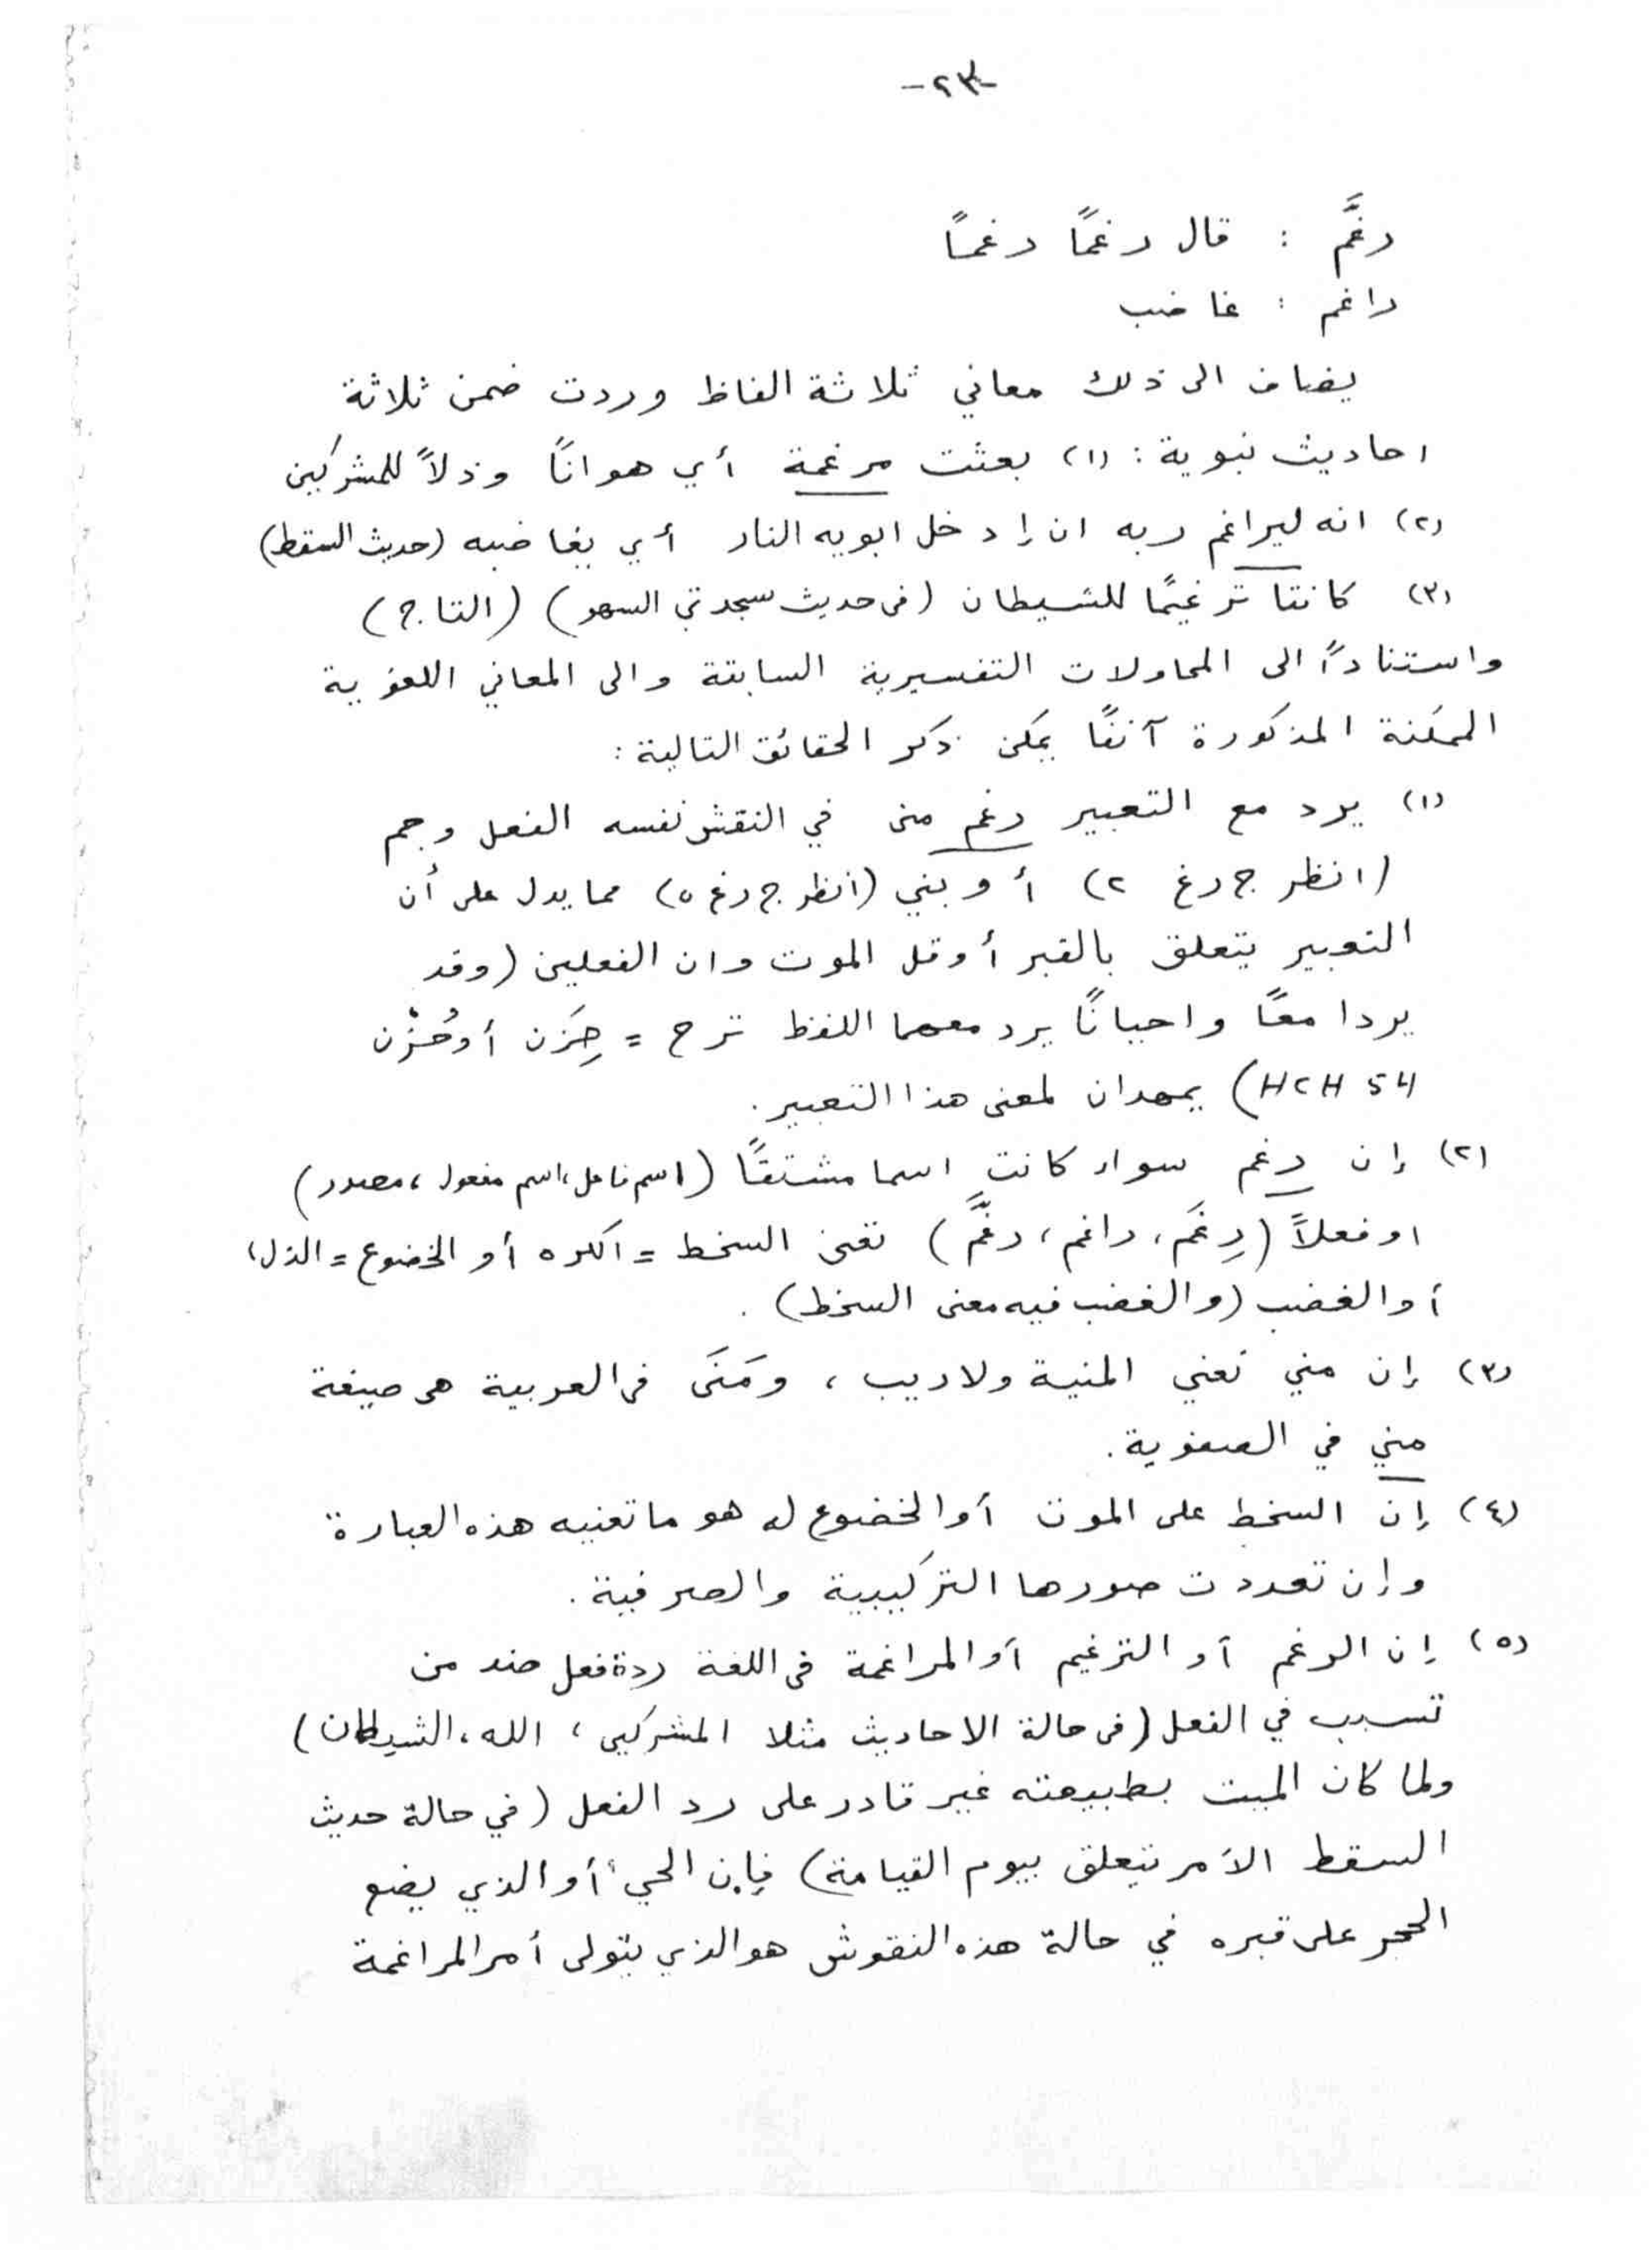 -٢٣-
رغَّم : قال رغمًا رغمًا
راغم : غاضب
يضاف الى ذلك معاني ثلاثة الفاظ وردت ضمن ثلاثة
احاديث نبوية : (١) بعثت مرغمة أي هوانًا وذلاً للمشركين
(٢) انه ليراغم ربه ان إدخل ابويه النار أي يغاضبه (حديث السقط)
(٣) كانتا ترغيمًا للشيطان (في حديث سجدتي السهو) (التاج)
واستنادًا الى المحاولات التفسيرية السابقة والى المعاني اللغوية
الممكنة المذكورة آنفًا يمكن ذكر الحقائق التالية :
(١) يرد مع التعبير رغم منى في النقش نفسه الفعل وجم
(انظر ج رغ ٢) أو بني (انظر ج رغ ٥) مما يدل على أن
التعبير يتعلق بالقبر أو قل الموت وان الفعلين (وقد
يردا معًا واحيانًا يرد معهما اللفظ ترح = حِزَن أو حُزْن
HCH 54) يمهدان لمعنى هذا التعبير .
(٢) إن رغم سواء كانت اسما مشتقًا (اسم فاعل، اسم مفعول، مصدر)
او فعلاً (رِغَم، راغم، رغَّمَ) تعني السخط = الكره أو الخضوع = الذل،
أو الغضب (والغضب فيه معنى السخط) .
(٣) إن مني تعني المنية ولا ريب ، ومَنَى في العربية هي صيغة
مني في الصفوية .
(٤) إن السخط على الموت أو الخضوع له هو ما تعنيه هذه العبارة
وإن تعددت صورها التركيبية والصرفية .
(٥) إن الرغم أو الترغيم أو المراغمة في اللغة ردة فعل ضد من
تسبب في الفعل (في حالة الاحاديث مثلا المشركين ، الله ، الشيطان)
ولما كان الميت بطبيعته غير قادر على رد الفعل (في حالة حديث
السقط الأمر يتعلق بيوم القيامة) فإن الحي أو الذي يضع
الحجر على قبره في حالة هذه النقوش هو الذي يتولى أمر المراغمة